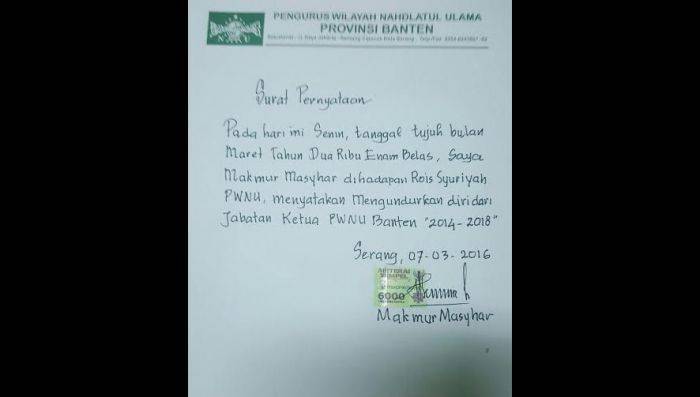 PENGURUS WILAYAH NAHDLATUL ULAMA
PROVINSI BANTEN
Surat Pernyataan
Pada hari ini Senin, tanggal tujuh bulan
Maret Tahun Dua Ribu Enam Belas, Saya
Makmur Masyhar dihadapan Rois Syuriyah
PWNU, menyatakan Mengundurkan diri dari
Jabatan Ketua PWNU Banten "2014-2018"
Serang, 07-03-2016
METERAI
TEMPEL
6000
Makmur Masyhar